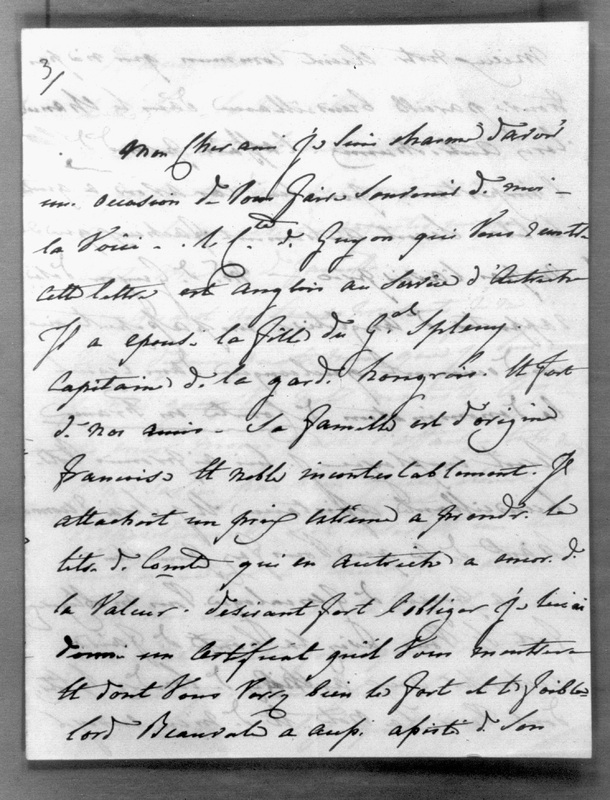 3/
Mon Cher ami je suis charmé d'avoir
une occasion de vous faire souvenir de moi –
la voici – . M. le C.te de Guyon qui vous remettra
cette lettre est anglois au service d'Autriche
Il a epousé la fille du G.al Spleny
Capitaine de la garde hongroise. Et fort
de nos amis – Sa famille est d'origine
francoise et noble incontestablement. Il
attachoit un prix extrême a prendre le
titre de Comte qui en Autriche a encore de
la Valeur. desirant fort l'obliger je lui ai
donné un Certificat qu'il vous montrera
et dont vous verrez bien le fort et le foible
lord Beauvale a aussi de son